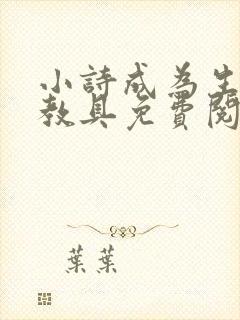 小詩成為生
教具免費閱
葉葉